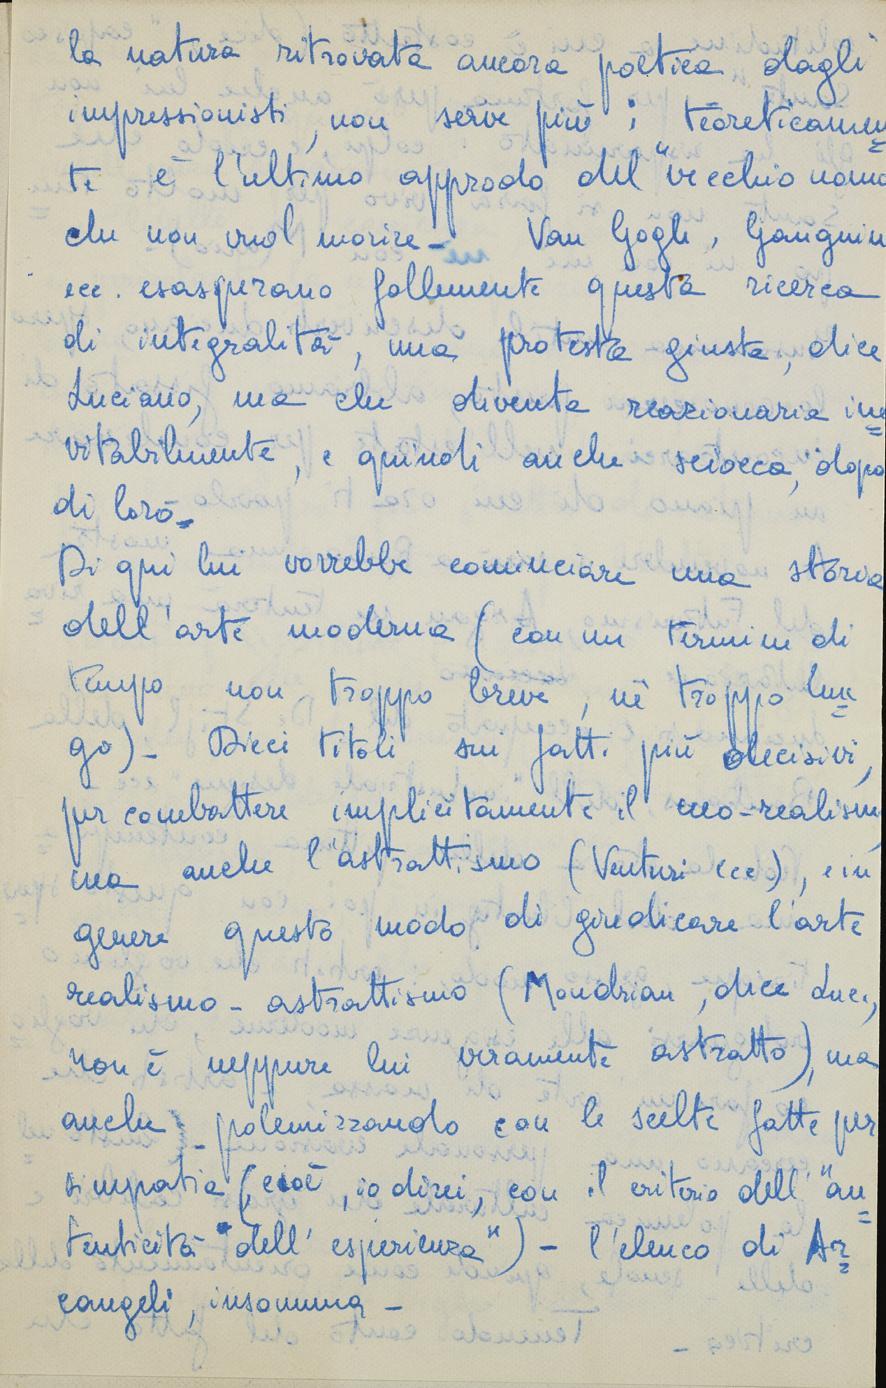 la natura ritrovata ancora poetica dagli
impressionisti, non serve più; teoreticamen=
te è l'ultimo approdo del "vecchio uomo
che non vuol morire_ Van Gogh, Gauguin
ecc. esasperano follemente questa ricerca
di integralità, una protesta giusta, dice
Luciano, ma che diventa reazionaria ine=
vitabilmente, e quindi anche sciocca, dopo
di loro_
Di qui lui vorrebbe cominciare una storia
dell'arte moderna (con un termine di
tempo non troppo breve, nè troppo lun=
go)_ Dieci titoli sui fatti più decisivi,
per combattere implicitamente il neo-realismo,
ma anche l'astrattismo (Venturi ecc), e in
genere questo modo di giudicare l'arte
realismo - astrattismo (Mondrian, dice Luc.,
non è neppure lui veramente astratto), ma
anche polemizzando con le scelte fatte per
simpatia (cioè, io direi, con il criterio dell' "au=
tenticità dell'esperienza") - l'elenco di Ar=
cangeli, insomma -